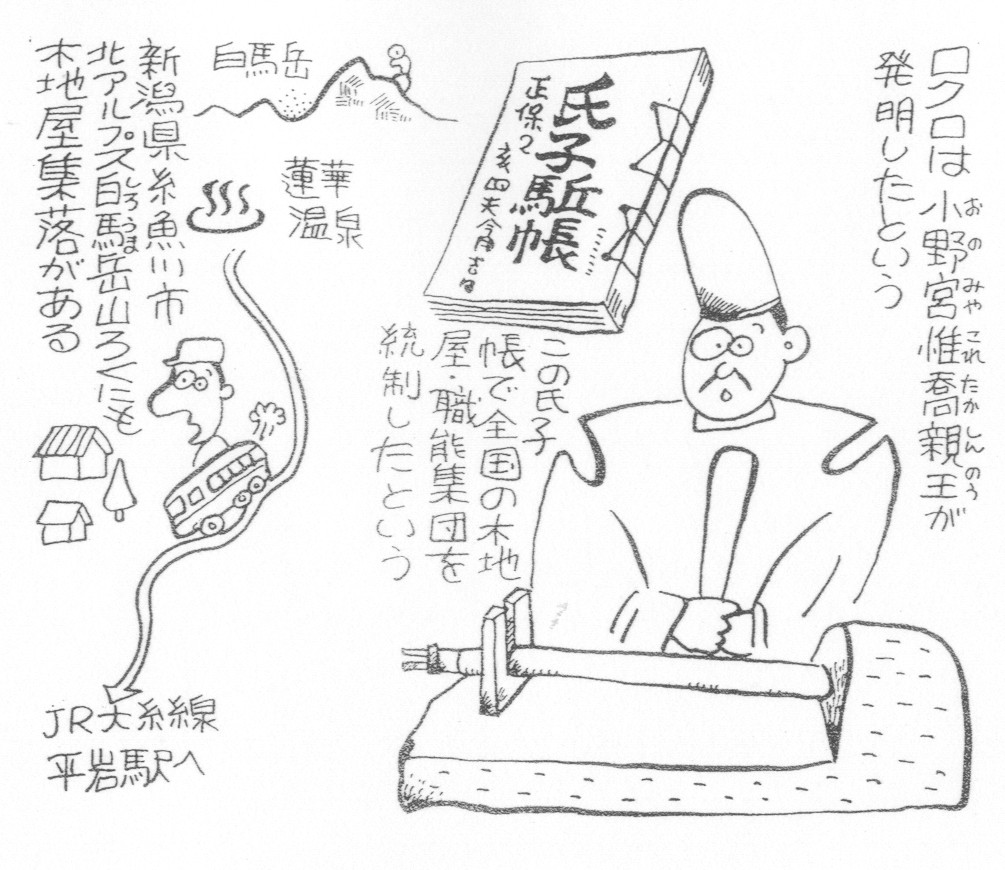 ロクロは小野宮惟喬親王が
おのみやこれたかしんのう
発明したという
氏子駈帳
正保2
この氏子
帳で全国の木地
屋・職能集団を
統制したという
白馬岳
蓮華
温泉
新潟県糸魚川市
北アルプス白馬岳山ろくにも
しろうま
木地屋集落がある
JR大糸線
平岩駅へ